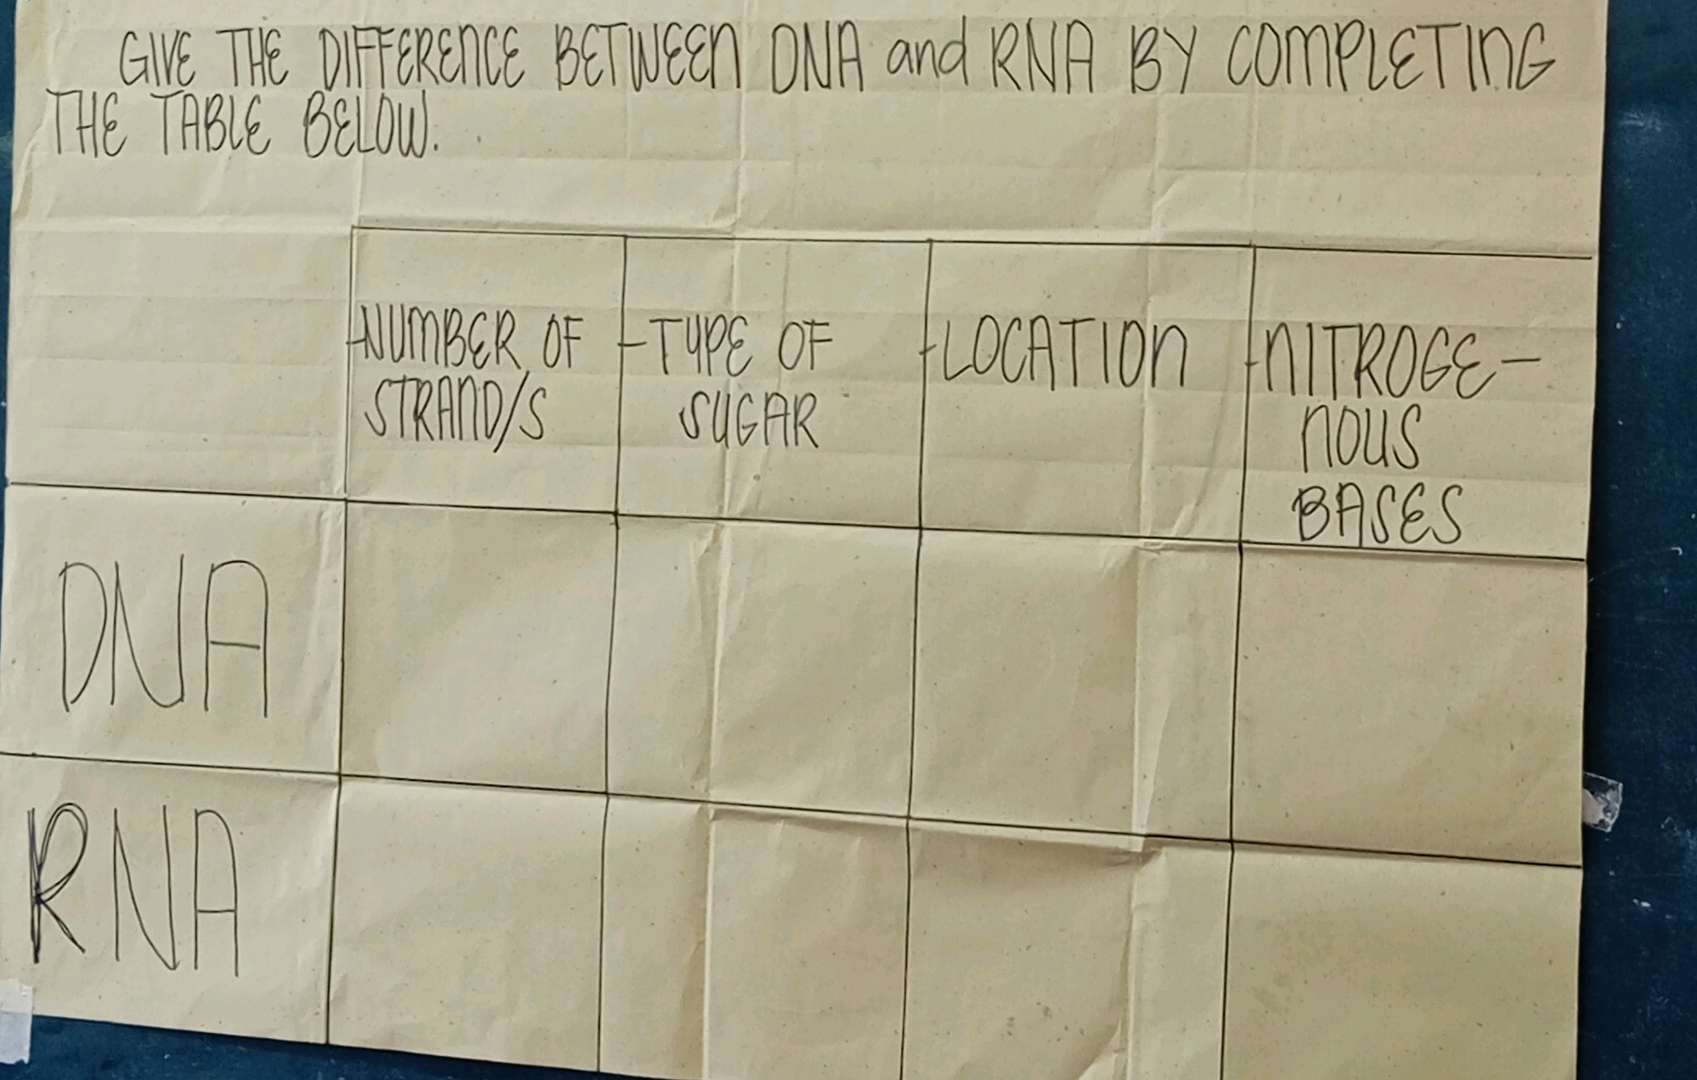 GIVE THE DIFFERENCE BETWEEN DNA and RNA BY COMPLETING
THE TABLE BELOW.
-NUMBER OF
STRAND/S
-TYPE OF
SUGAR
-LOCATION
-NITROGE-
NOUS
BASES
DNA
RNA